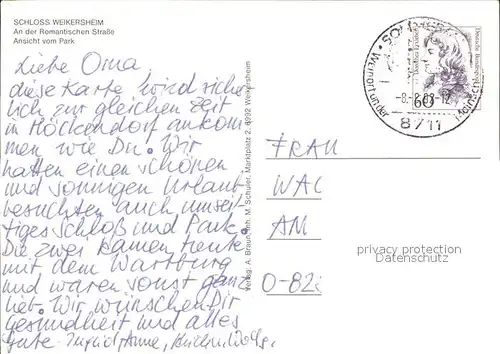 SCHLOSS WEIKERSHEIM
An der Romantischen Straße
Ansicht vom Park
Liebe Oma,
diese Karte wird siche
lich zur gleichen Zeit
in Höckendorf ankom
men wie Du. Wir
hatten einen schönen
und sonnigen Urlaub
besuchten auch umsei
tiges Schloß und Park.
Die zwei kamen heute
mit dem Wartburg
und waren sonst ganz
lieb. Wir wünschen Dir
Gesundheit und alles
Gute. Ingrid, Anne,
Verlag: A. Braun, Inh. M. Schuler, Marktplatz 2, 6992 Weikersheim
Deutsche Bundespost
60
Weinort an der
8711
FRAU
WAL
AM
O-82
privacy protection
Datenschutz